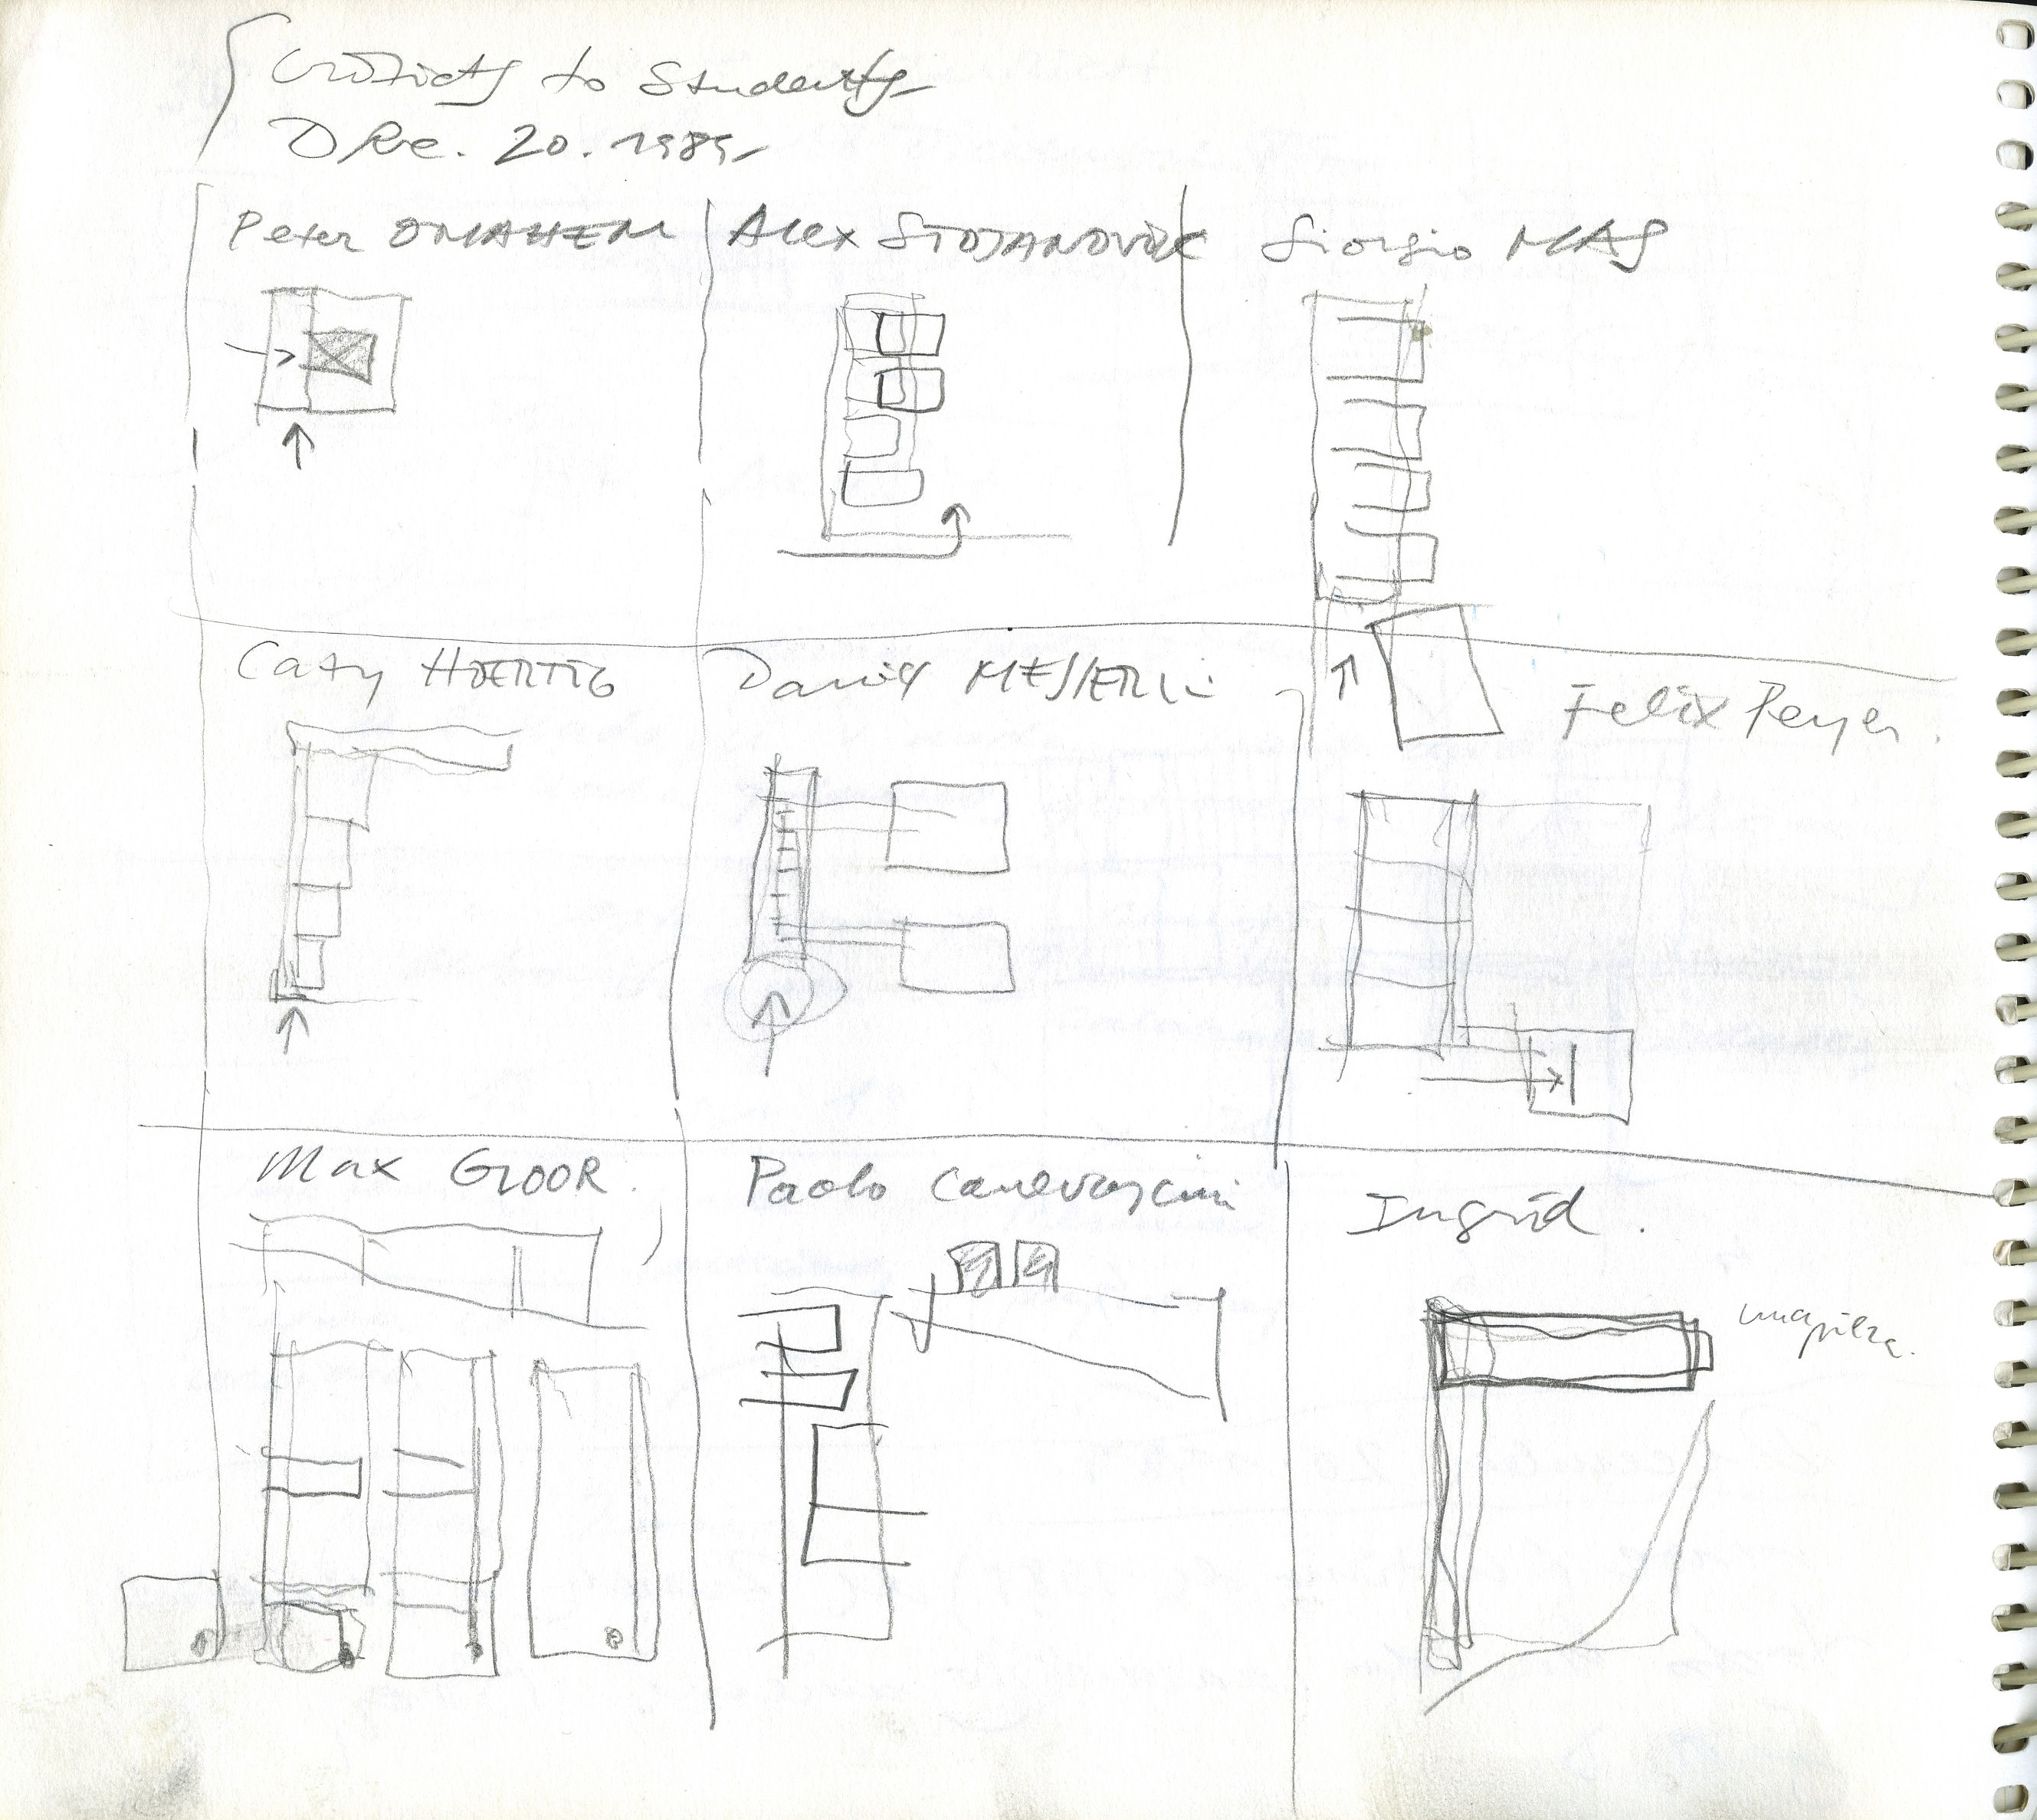 to Students
Dec. 20. 1989
Peter OMAHEM
Alex STOJANOVIK
Giorgio MAS
Caty HOERTIG
David MESSERLi
Felix Peyer.
Max GLOOR.
Paolo Canevascini
Ingrid.
una